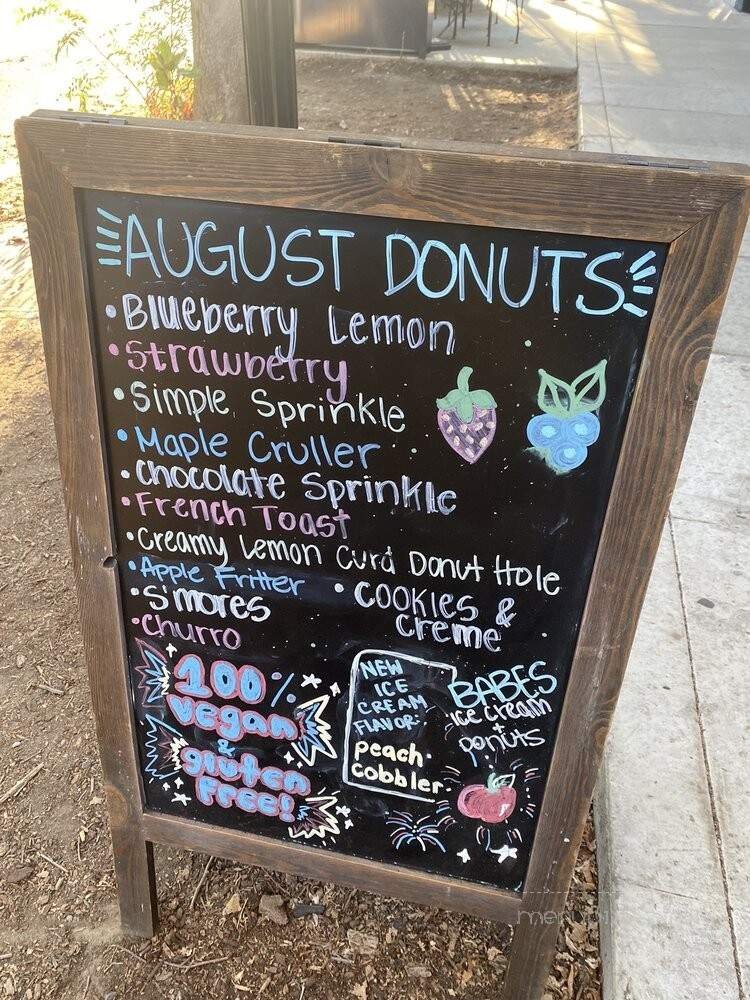 AUGUST DONUTS
• Blueberry Lemon
• Strawberry
• Simple Sprinkle
• Maple Cruller
• Chocolate Sprinkle
• French Toast
• Creamy Lemon Curd Donut Hole
• Apple Fritter
• Cookies &
Creme
• S'mores
• Churro
100%
vegan
&
gluten
free!
NEW
ICE
CREAM
FLAVOR:
peach
cobbler
BABES
ice cream
+
donuts